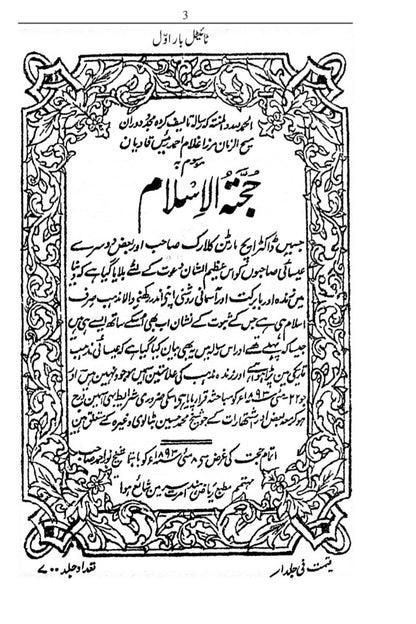 3
ٹائیٹل بار اوّل
الحمد للہ والمنۃ کہ رسالہ تالیف کردہ مجدد دوران
مسیح الزمان مرزا غلام احمد رئیس قادیان
موسوم بہ
حُجّۃُ الاِسْلَام
جسمیں ڈاکٹر ایچ مارٹن کلارک صاحب اور بعض دوسرے
عیسائی صاحبوں کو اس عظیم الشان دعوت کے لئے بلایا گیا ہے کہ دنیا
میں زندہ اور بابرکت اور آسمانی روشنی اپنے اندر رکھنے والا مذہب صرف
اسلام ہی ہے جس کے ثبوت کے نشان اب بھی اُسکے ساتھ ایسے ہی ہیں
جیسا کہ پہلے تھے اور اس رسالہ میں یہ بھی بیان کیا گیا ہے کہ عیسائی مذہب
تاریکی میں پڑا ہوا ہے اور زندہ مذہب کی علامتیں اسمیں موجود نہیں ہیں اور
جو ۲۲ مئی ۱۸۹۳ء کو مباحثہ قرار پایا ہے اسکی ضروری شرائط بھی اسمیں درج
ہوکر بعض اور اشتہارات کے جو شیخ محمد حسین بٹالوی وغیرہ کے متعلق ہیں
اتمام حجت کی غرض سے ۸ مئی ۱۸۹۳ء کو باہتمام شیخ نور احمد صاحب
مہتمم مطبع ریاض ہند امرتسر میں شائع ہوا
تعداد جلد ۷۰۰
قیمت فی جلد ار